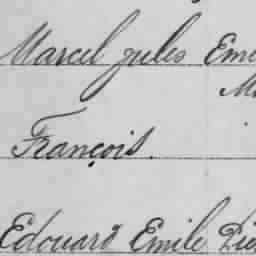 Marcel Jules
François.
Edouard Emile